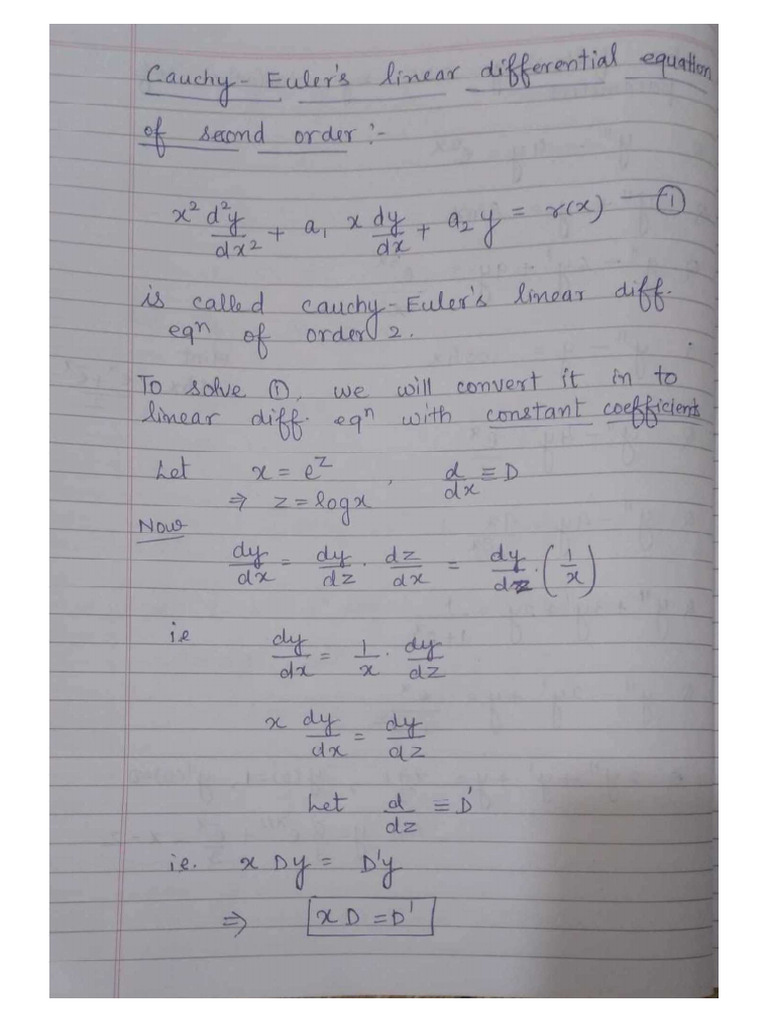 Cauchy-Euler's linear differential equation
of second order :-
x² d²y/dx² + a₁ x dy/dx + a₂ y = r(x) — ①
is called cauchy-Euler's linear diff.
eqⁿ of order 2.
To solve ①, we will convert it in to
linear diff. eqⁿ with constant coefficients
Let x = e^z , d/dx ≡ D
⇒ z = log x
Now
dy/dx = dy/dz · dz/dx = dy/dz · (1/x)
ie dy/dx = 1/x · dy/dz
x dy/dx = dy/dz
Let d/dz ≡ D'
ie. x Dy = D'y
⇒ x D = D'